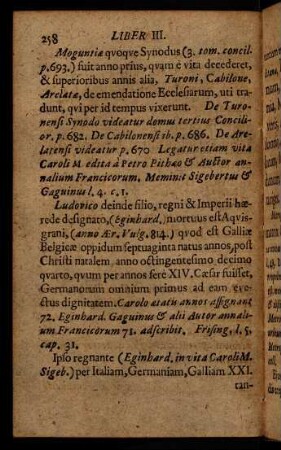 258 LIBER III.
Moguntiæ quoqve Synodus (3. tom. concil.
p.693.) fuit anno prius, qvam è vita decederet,
& superioribus annis alia, Turoni, Cabilone,
Arelatæ, de emendatione Ecclesiarum, uti tra-
dunt, qvi per id tempus vixerunt. De Turo-
nensi Synodo videatur tomus tertius Concili-
or. p. 682. De Cabilonensi ib. p. 686. De Are-
latensi videatur p. 670 Legatur etiam vita
Caroli M. edita à Petro Pithæo & Auctor an-
nalium Francicorum. Meminit Sigebertus &
Gaguinus l. 4. c. 1.
Ludovico deinde filio, regni & Imperii hæ-
rede designato, (Eginhard,) mortuus est Aqvis-
grani, (anno Ær. Vulg. 814.) qvod est Galliæ
Belgicæ oppidum septuaginta natus annos, post
Christi natalem, anno octingentesimo decimo
qvarto, qvum per annos ferè XIV. Cæsar fuisset,
Germanorum omnium primus ad eam eve-
ctus dignitatem. Carolo ætatis annos assignant
72. Eginhard. Gaguinus & alii Autor annali-
um Francicorum 71. adscribit. Frising, l. 5.
cap. 31.
Ipso regnante (Eginhard. in vita Caroli M.
Sigeb.) per Italiam, Germaniam, Galliam XXI.
tan-